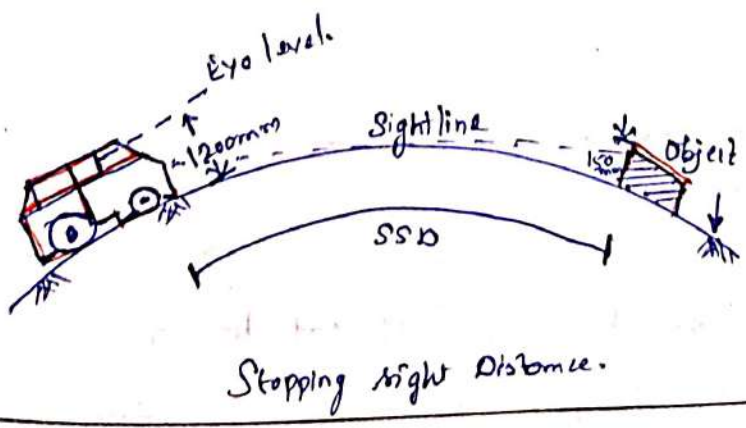 Eye level.
1200mm
Sightline
150
mm
Object
SSD
Stopping sight Distance.